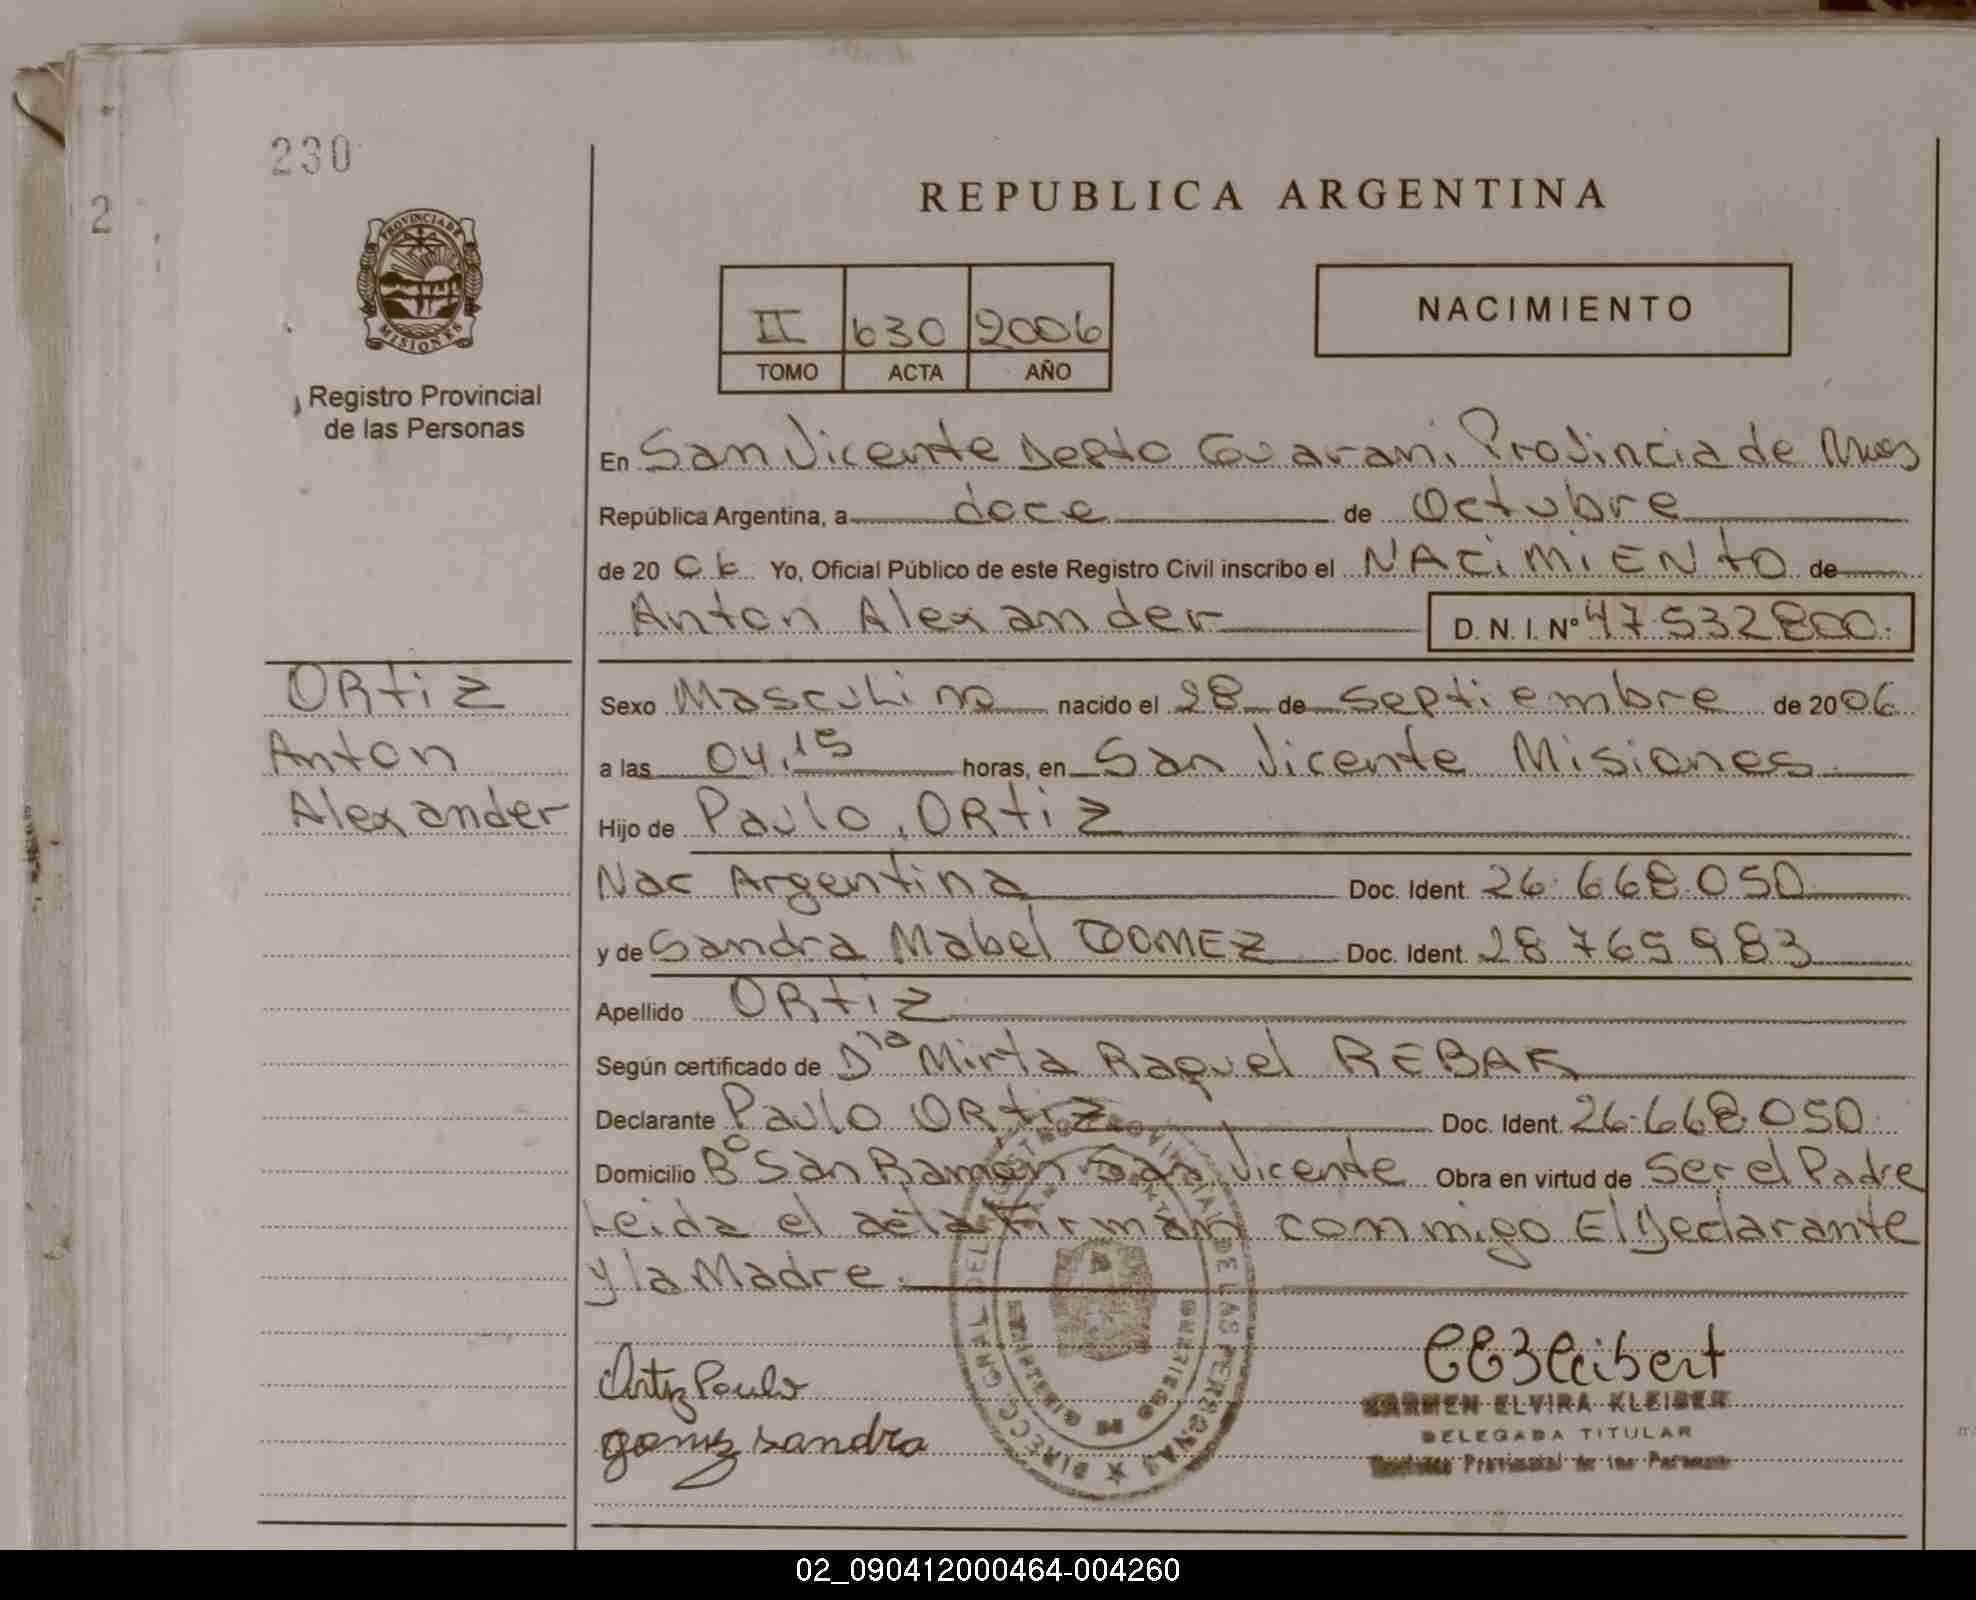 230
2
PROVINCIA DE MISIONES
Registro Provincial
de las Personas
REPUBLICA ARGENTINA
II 630 2006
TOMO ACTA AÑO
NACIMIENTO
En San Vicente Depto Guarani, Provincia de Mnes
República Argentina, a doce de Octubre
de 20 06 Yo, Oficial Público de este Registro Civil inscribo el NACIMIENTO de
Anton Alexander D. N. I. Nº 47532800.
Ortiz
Anton
Alexander
Sexo Masculino nacido el 28 de septiembre de 2006
a las 04,15 horas, en San Vicente Misiones
Hijo de Paulo, ORtiz
Nac Argentina Doc. Ident. 26.668.050
y de Sandra Mabel GOMEZ Doc. Ident. 28765983
Apellido ORtiz
Según certificado de Dra Mirta Raquel REBAK
Declarante Paulo ORtiz Doc. Ident. 26.668.050
Domicilio Bº San Ramon San Vicente Obra en virtud de ser el Padre
Leida el acta Firman conmigo El Declarante
y la Madre.
Ortiz Paulo
gomez sandra
DIRECC. GRAL. DEL REGISTRO PROVINCIAL DE LAS PERSONAS
CARMEN ELVIRA KLEIBER
DELEGADA TITULAR
Registro Provincial de las Personas
02_090412000464-004260